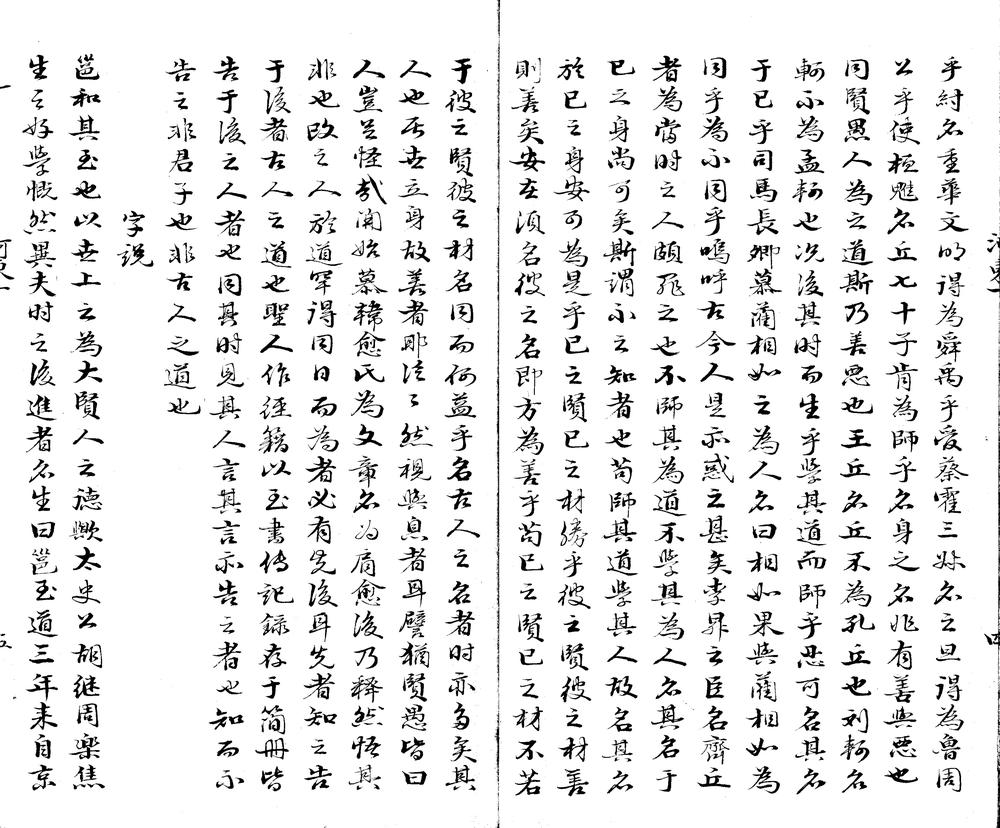 乎紂名重華文明得為舜禹乎受蔡霍三姝名之旦得為魯周
公乎使桓魋名丘七十子肯為師乎名身之名非有善與惡也
同賢愚人為之道斯乃善惡也王丘名丘不為孔丘也刘軻名
軻不為孟軻也况後其时而生乎學其道而師乎惡可名其名
于已乎司馬長卿慕藺相如之為人名曰相如果與藺相如為
同乎為不同乎嗚呼古今人是亦惑之甚矣李昇之臣名齊丘
者為當时之人頗罪之也不師其為道不學其為人名其名于
已之身尚可矣斯謂不之知者也苟師其道學其人故名其名
於已之身安可為是乎已之賢已之材勝乎彼之賢彼之材善
則善矣安在須名彼之名即方為善乎苟已之賢已之材不若
于彼之賢彼之材名同而何益乎名古人之名者时亦多矣其
人也居世立身故善者耶泛々然視與息者耳譬猶賢愚皆曰
人豈足怪哉開始慕韓愈氏為文章名为肩愈後乃釋然悟其
非也改之人於道罕得同日而為者必有先後耳先者知之告
于後者古人之道也聖人作經籍以至書傳記録存于簡冊皆
告于後之人者也同其时見其人言其言亦告之者也知而不
告之非君子也非古人之道也
字説
邕和其至也以世上之為大賢人之德歟太史公胡继周樂焦
生之好學慨然異夫时之後進者名生曰邕至道三年来自京